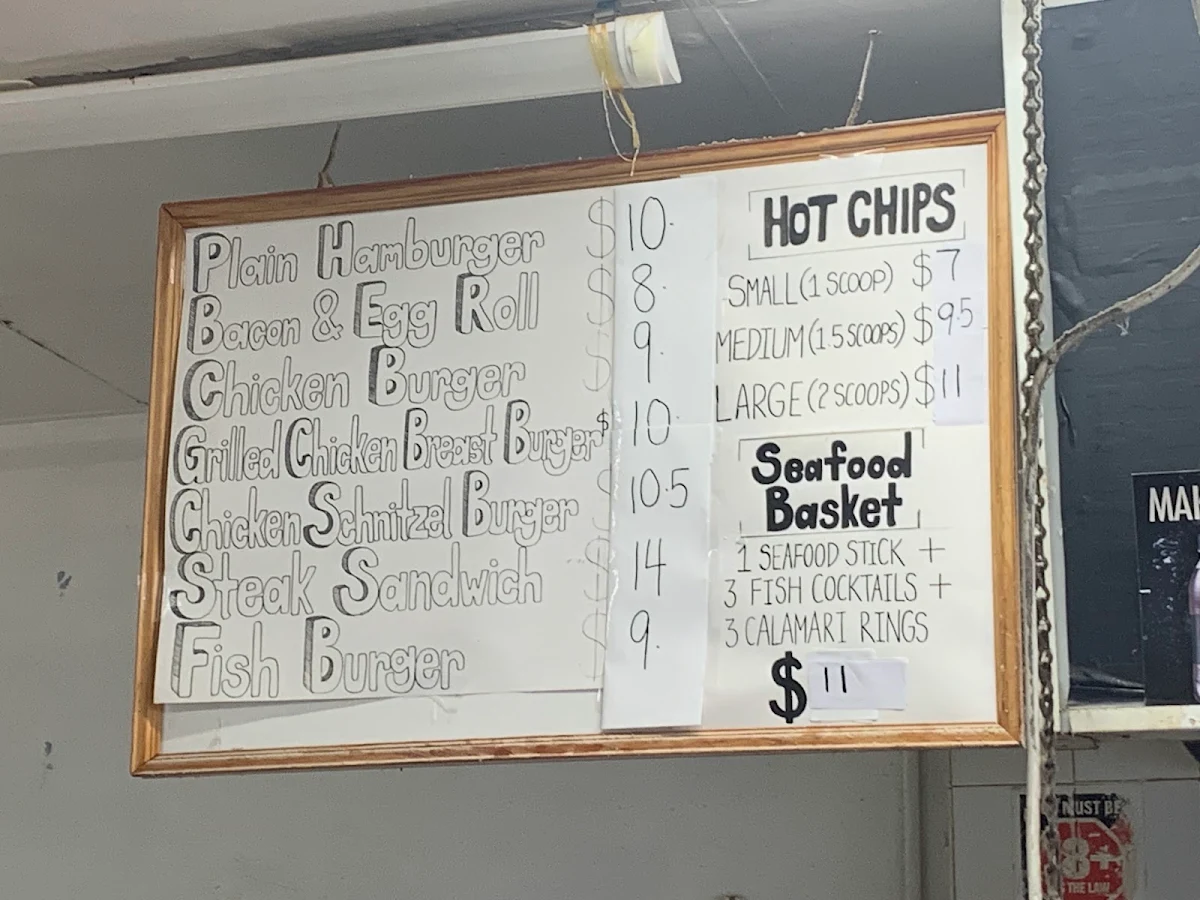 Plain Hamburger $ 10.
Bacon & Egg Roll $ 8.
Chicken Burger $ 9.
Grilled Chicken Breast Burger $ 10.
Chicken Schnitzel Burger $ 10.5
Steak Sandwich $ 14
Fish Burger $ 9.
HOT CHIPS
SMALL (1 SCOOP) $7
MEDIUM (1.5 SCOOPS) $9.5
LARGE (2 SCOOPS) $11
Seafood
Basket
1 SEAFOOD STICK +
3 FISH COCKTAILS +
3 CALAMARI RINGS
$ 11
MUST BE
18+
THE LAW